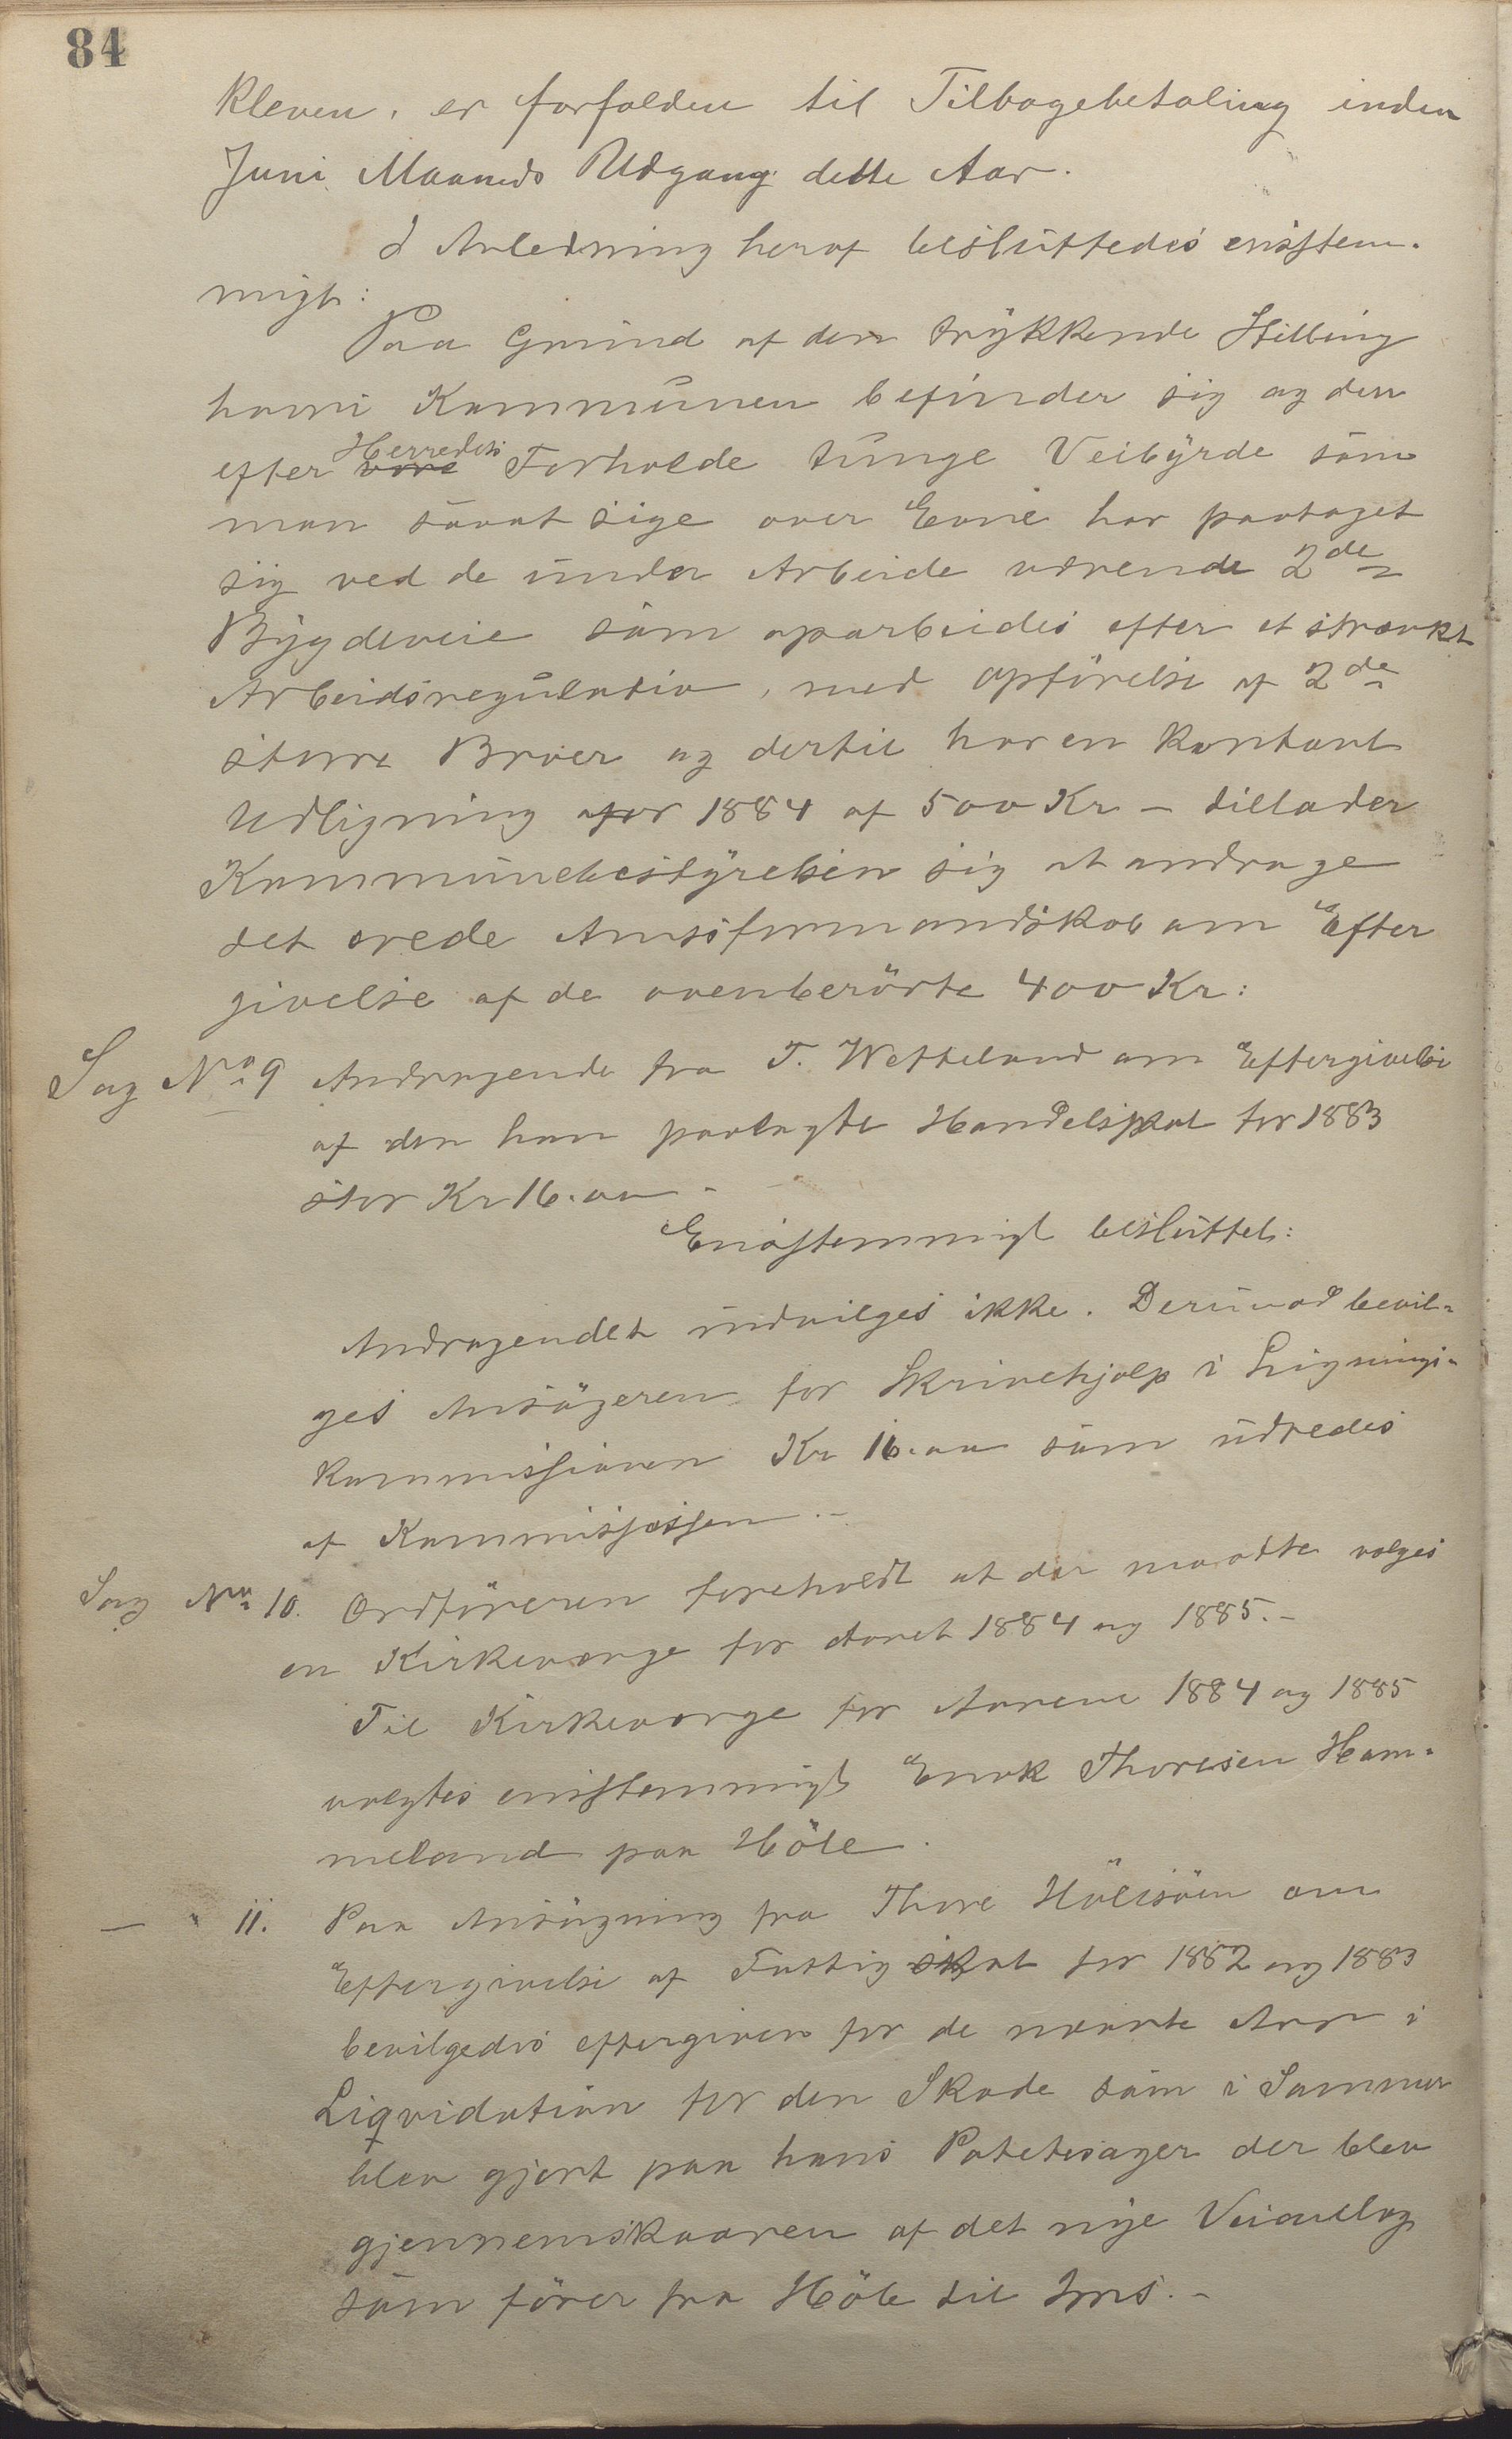 84
Kleven, er forfalden til Tilbagebetaling inden
Juni Maaneds Udgang dette Aar.
I Anledning heraf besluttedes enstem-
migt:
Paa Grund af den trykkende Stilling
hvori Kommunen befinder sig og den
efter Herredets vore Forholde tunge Veibyrde som
man saaat sige over Evne har paataget
sig ved de under Arbeide værende 2de
Bygdeveie som oparbeides efter et strænkt
Arbeidsregulativ, med Opførelse af 2de
større Broer og dertil har en kontant
Udligning for 1884 af 500 Kr – tillader
Kommunebestyrelsen sig at andrage
det ærede Amtsformandskab om Efter
givelse af de ovenberørte 400 Kr:
Sag No 9 Andragende fra T. Wetteland om Eftergivelse
af den ham paalagte Handelsskat for 1883
stor Kr 16.oo –
Enstemmigt besluttet:
Andragendet indvilges ikke. Derimod bevil-
ges Ansøgeren for Skrivehjælp i Lignings-
kommissionen Kr 16.oo som udredes
af Kommunekassen.–
Sag No 10. Ordføreren foreholdt at der maatte vælges
en Kirkeværge for Aaret 1884 og 1885.–
Til Kirkeværge for Aarene 1884 og 1885
valgtes enstemmigt Enok Thoresen Ham-
meland paa Høle.
— " 11. Paa Ansøgning fra Thore Hølesøen om
Eftergivelse af Fattigskat for 1882 og 1883
bevilgedes eftergiven for de nævnte Aar i
Liqvidation for den Skade som i Sommer
blev gjort paa hans Potetesager der blev
gjennemskaaren af det nye Veianlæg
som fører fra Høle til Ims.–